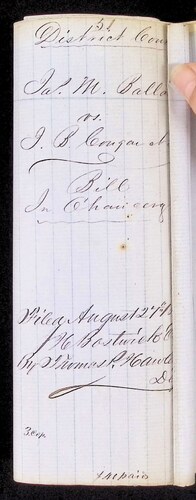 51
District Cour
Jas. M. Ballo
vs.
J. B. Cougar
Bill
In Chancery
Filed August 27th
Bostwick
By Thomas P. Hawle
3 cop
paid